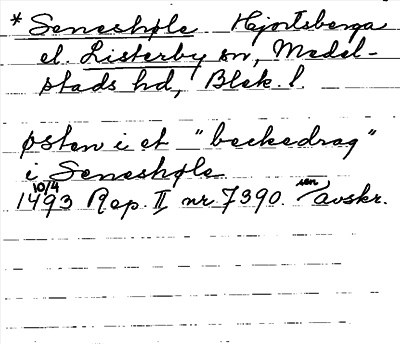 * Seneshøle Hjortsberga
el. Listerby sn, Medel-
stads hd, Blek. l.
østen i et "beckedrag"
i Seneshøle
10/4
1493 Rep. II nr 7390. sen avskr.